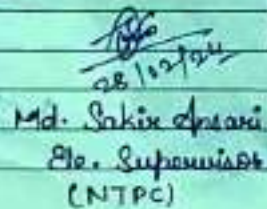 28/02/24
Md. Sakir Ansari
Ele. Supervisor
(NTPC)